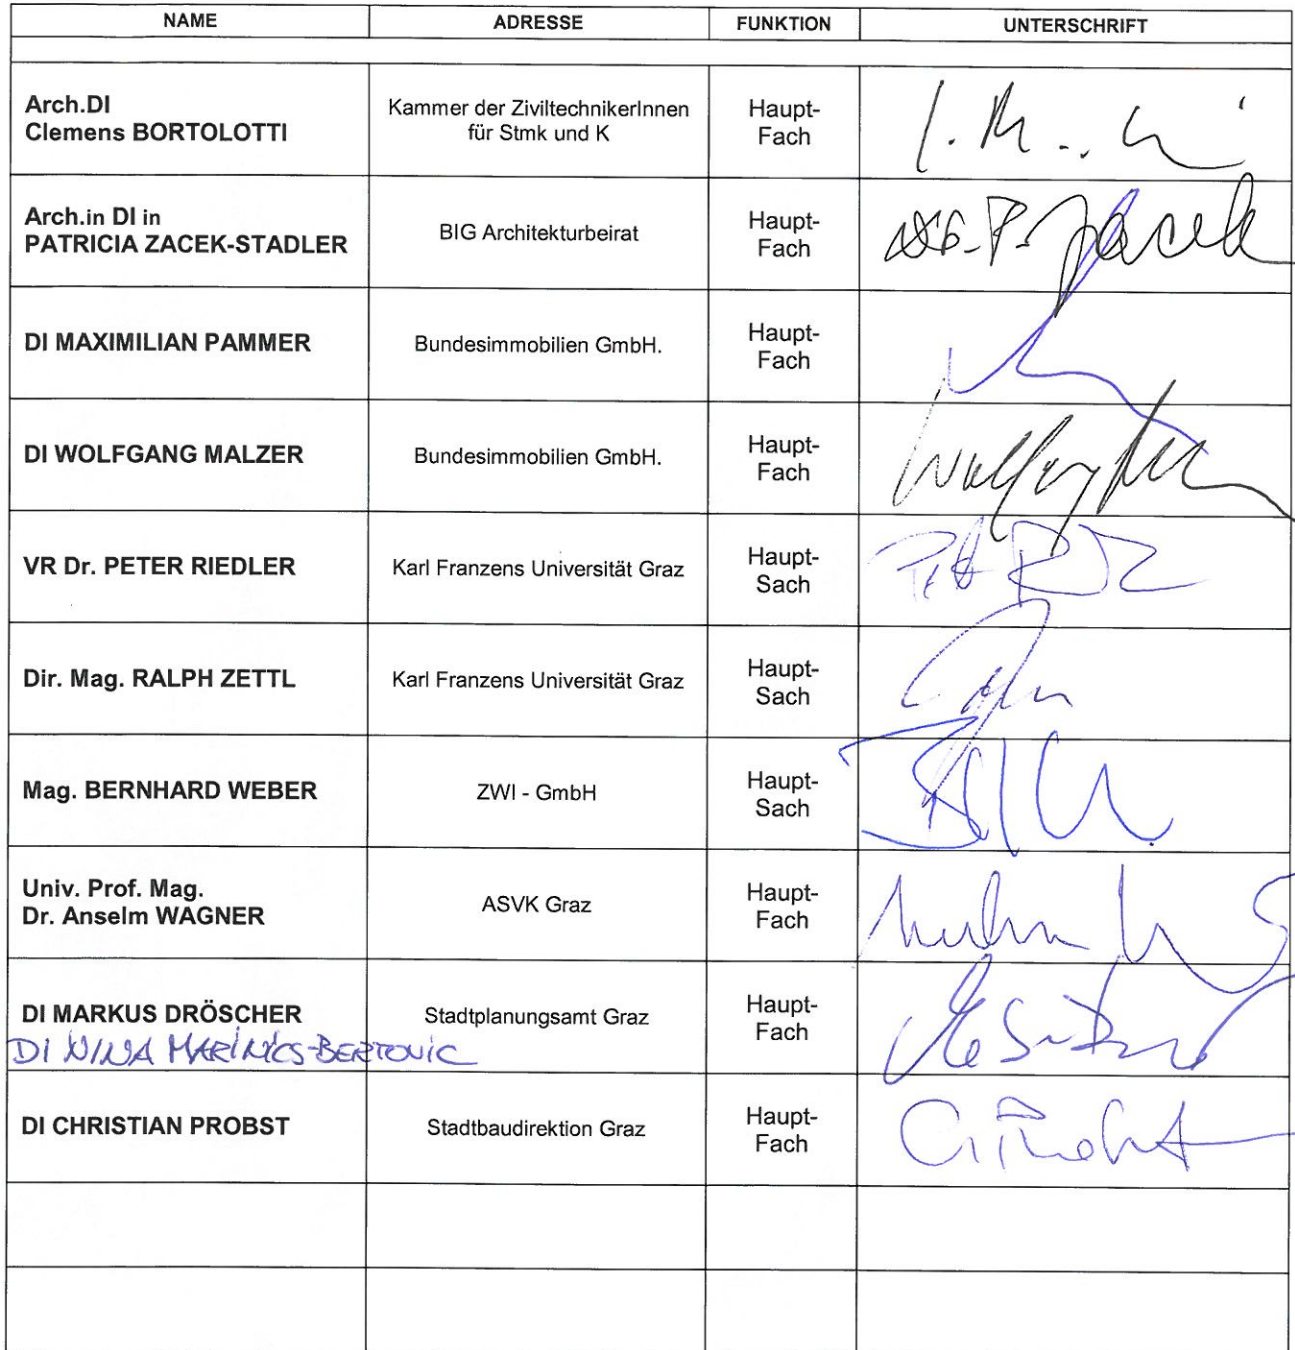 NAME ADRESSE FUNKTION UNTERSCHRIFT
Arch.DI
Clemens BORTOLOTTI
Kammer der ZiviltechnikerInnen
für Stmk und K
Haupt-
Fach
Arch.in DI in
PATRICIA ZACEK-STADLER
BIG Architekturbeirat
Haupt-
Fach
DI MAXIMILIAN PAMMER
Bundesimmobilien GmbH.
Haupt-
Fach
DI WOLFGANG MALZER
Bundesimmobilien GmbH.
Haupt-
Fach
VR Dr. PETER RIEDLER
Karl Franzens Universität Graz
Haupt-
Sach
Dir. Mag. RALPH ZETTL
Karl Franzens Universität Graz
Haupt-
Sach
Mag. BERNHARD WEBER
ZWI - GmbH
Haupt-
Sach
Univ. Prof. Mag.
Dr. Anselm WAGNER
ASVK Graz
Haupt-
Fach
DI MARKUS DRÖSCHER
DI NINA
Stadtplanungsamt Graz
Haupt-
Fach
DI CHRISTIAN PROBST
Stadtbaudirektion Graz
Haupt-
Fach